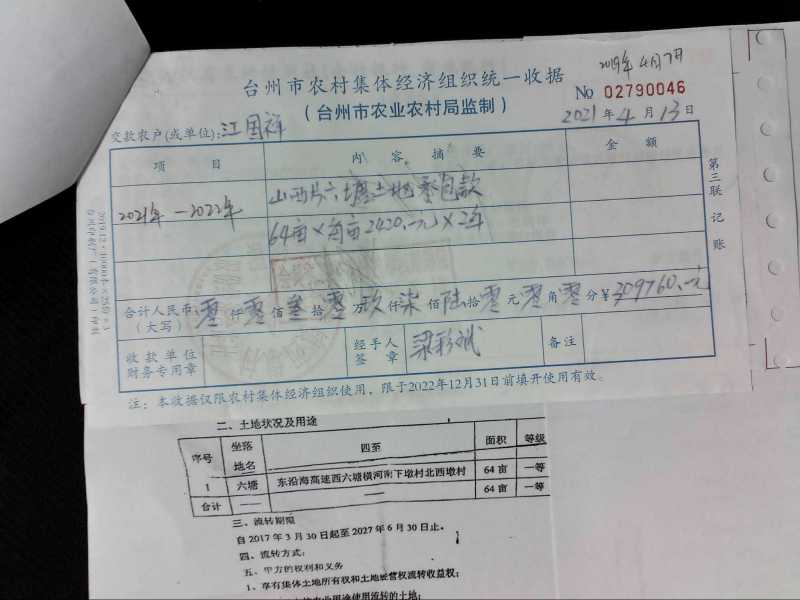 2019年4月7日
台州市农村集体经济组织统一收据
(台州市农业农村局监制)
No 02790046
2021年4月13日
交款农户(或单位):江国祥
项目 内容摘要 金额
2021年—2022年 山西片六塘土地承包款
64亩×每亩2420.—元×2年
合计人民币:零仟零佰叁拾零万玖仟柒佰陆拾零元零角零分¥309760.—元
(大写)
收款单位 财务专用章 经手人 签章 梁彩斌 备注
注:本收据仅限农村集体经济组织使用,限于2022年12月31日前填开使用有效。
第三联 记账
二、土地状况及用途
序号 坐落地名 四至 面积 等级
1 六塘 东沿海高速西六塘横河南下墩村北西墩村 64亩 一等
合计 —— —— 64亩 一等
三、流转期限
自2017年3月30日起至2027年6月30日止。
四、流转方式:
五、甲方的权利和义务
1、享有集体土地所有权和土地经营权流转收益权;
使用流转的土地;